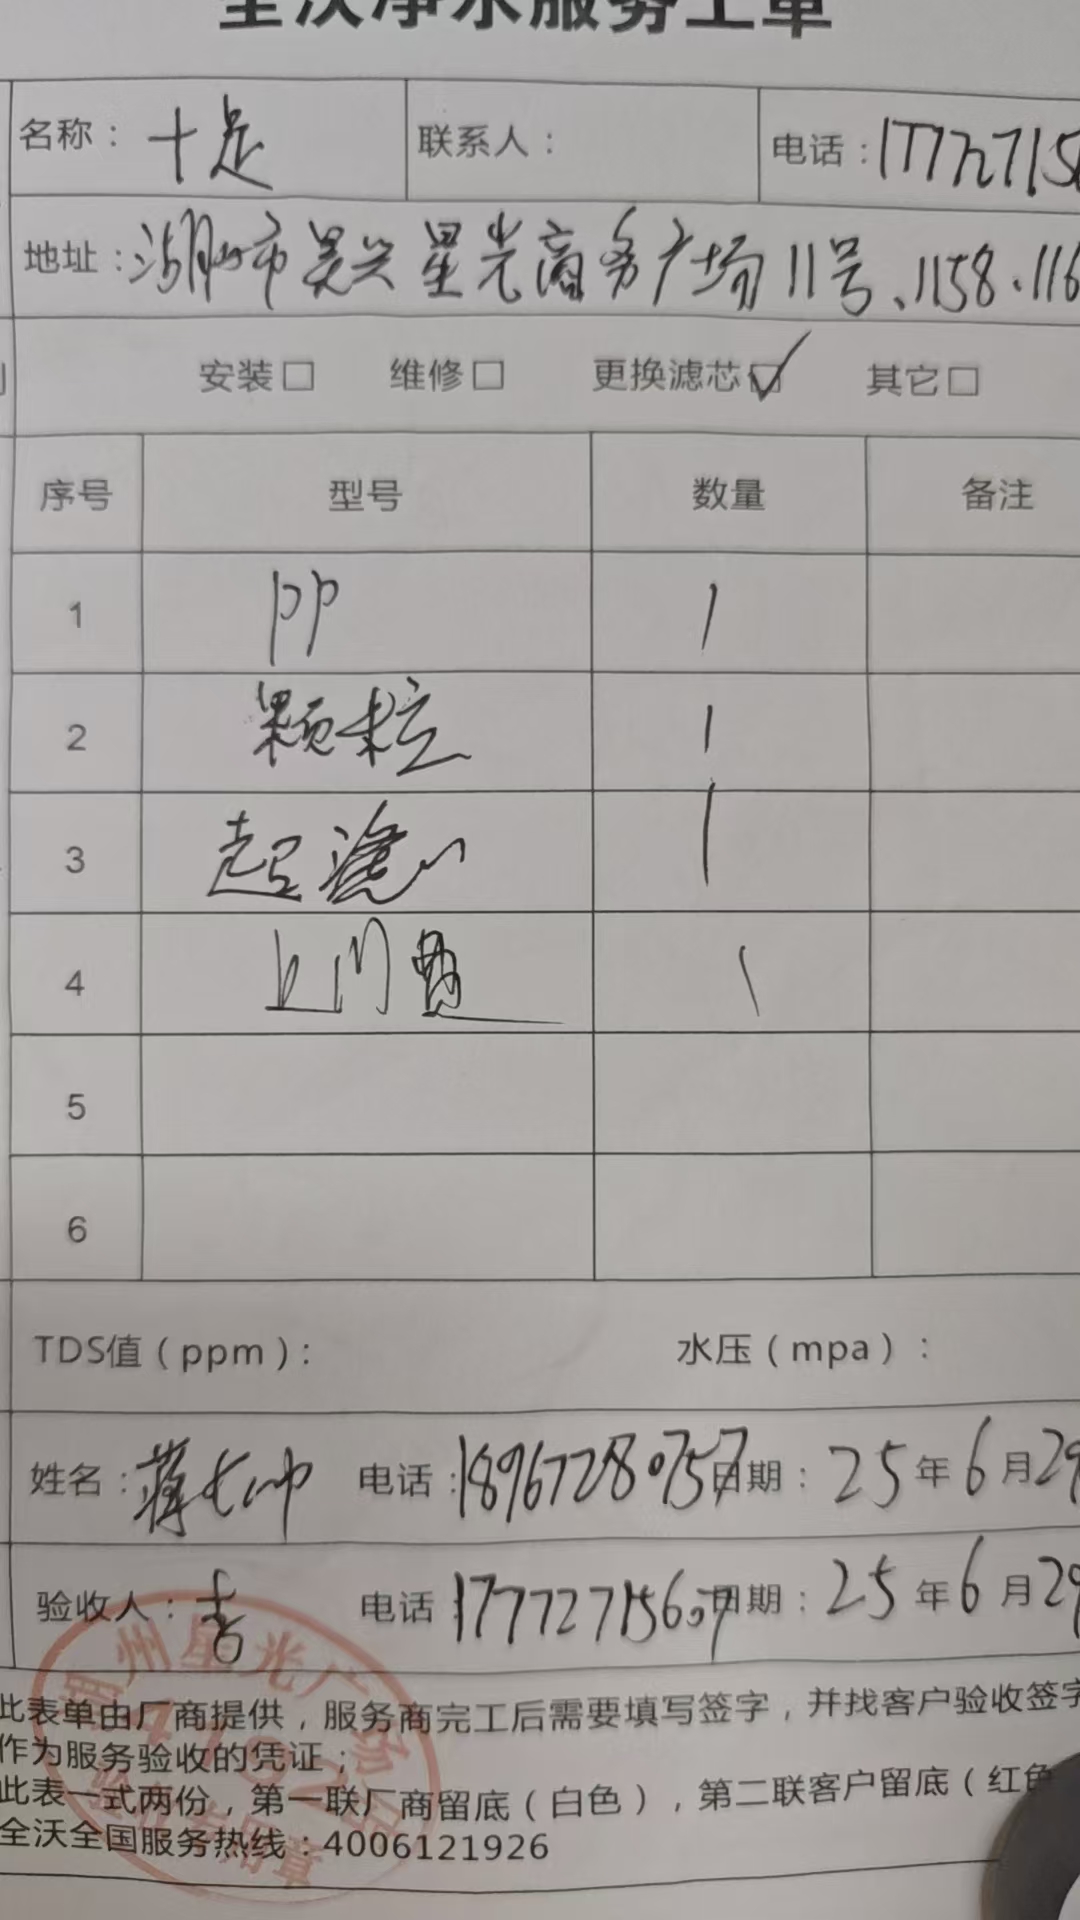 全沃净水服务工单
名称：十足 联系人： 电话：177727156
地址：湖州市吴兴星光商务广场11号、1158、116
安装□ 维修□ 更换滤芯☑ 其它□
序号 型号 数量 备注
1 PP 1
2 颗粒 1
3 超滤 1
4 上门费 1
5
6
TDS值（ppm）： 水压（mpa）：
姓名：蒋 电话：18967280757 日期：25年6月29
验收人： 电话 17772715607 日期：25年6月29
湖州星光广场
此表单由厂商提供，服务商完工后需要填写签字，并找客户验收签字
作为服务验收的凭证；
此表一式两份，第一联厂商留底（白色），第二联客户留底（红色
全沃全国服务热线：4006121926